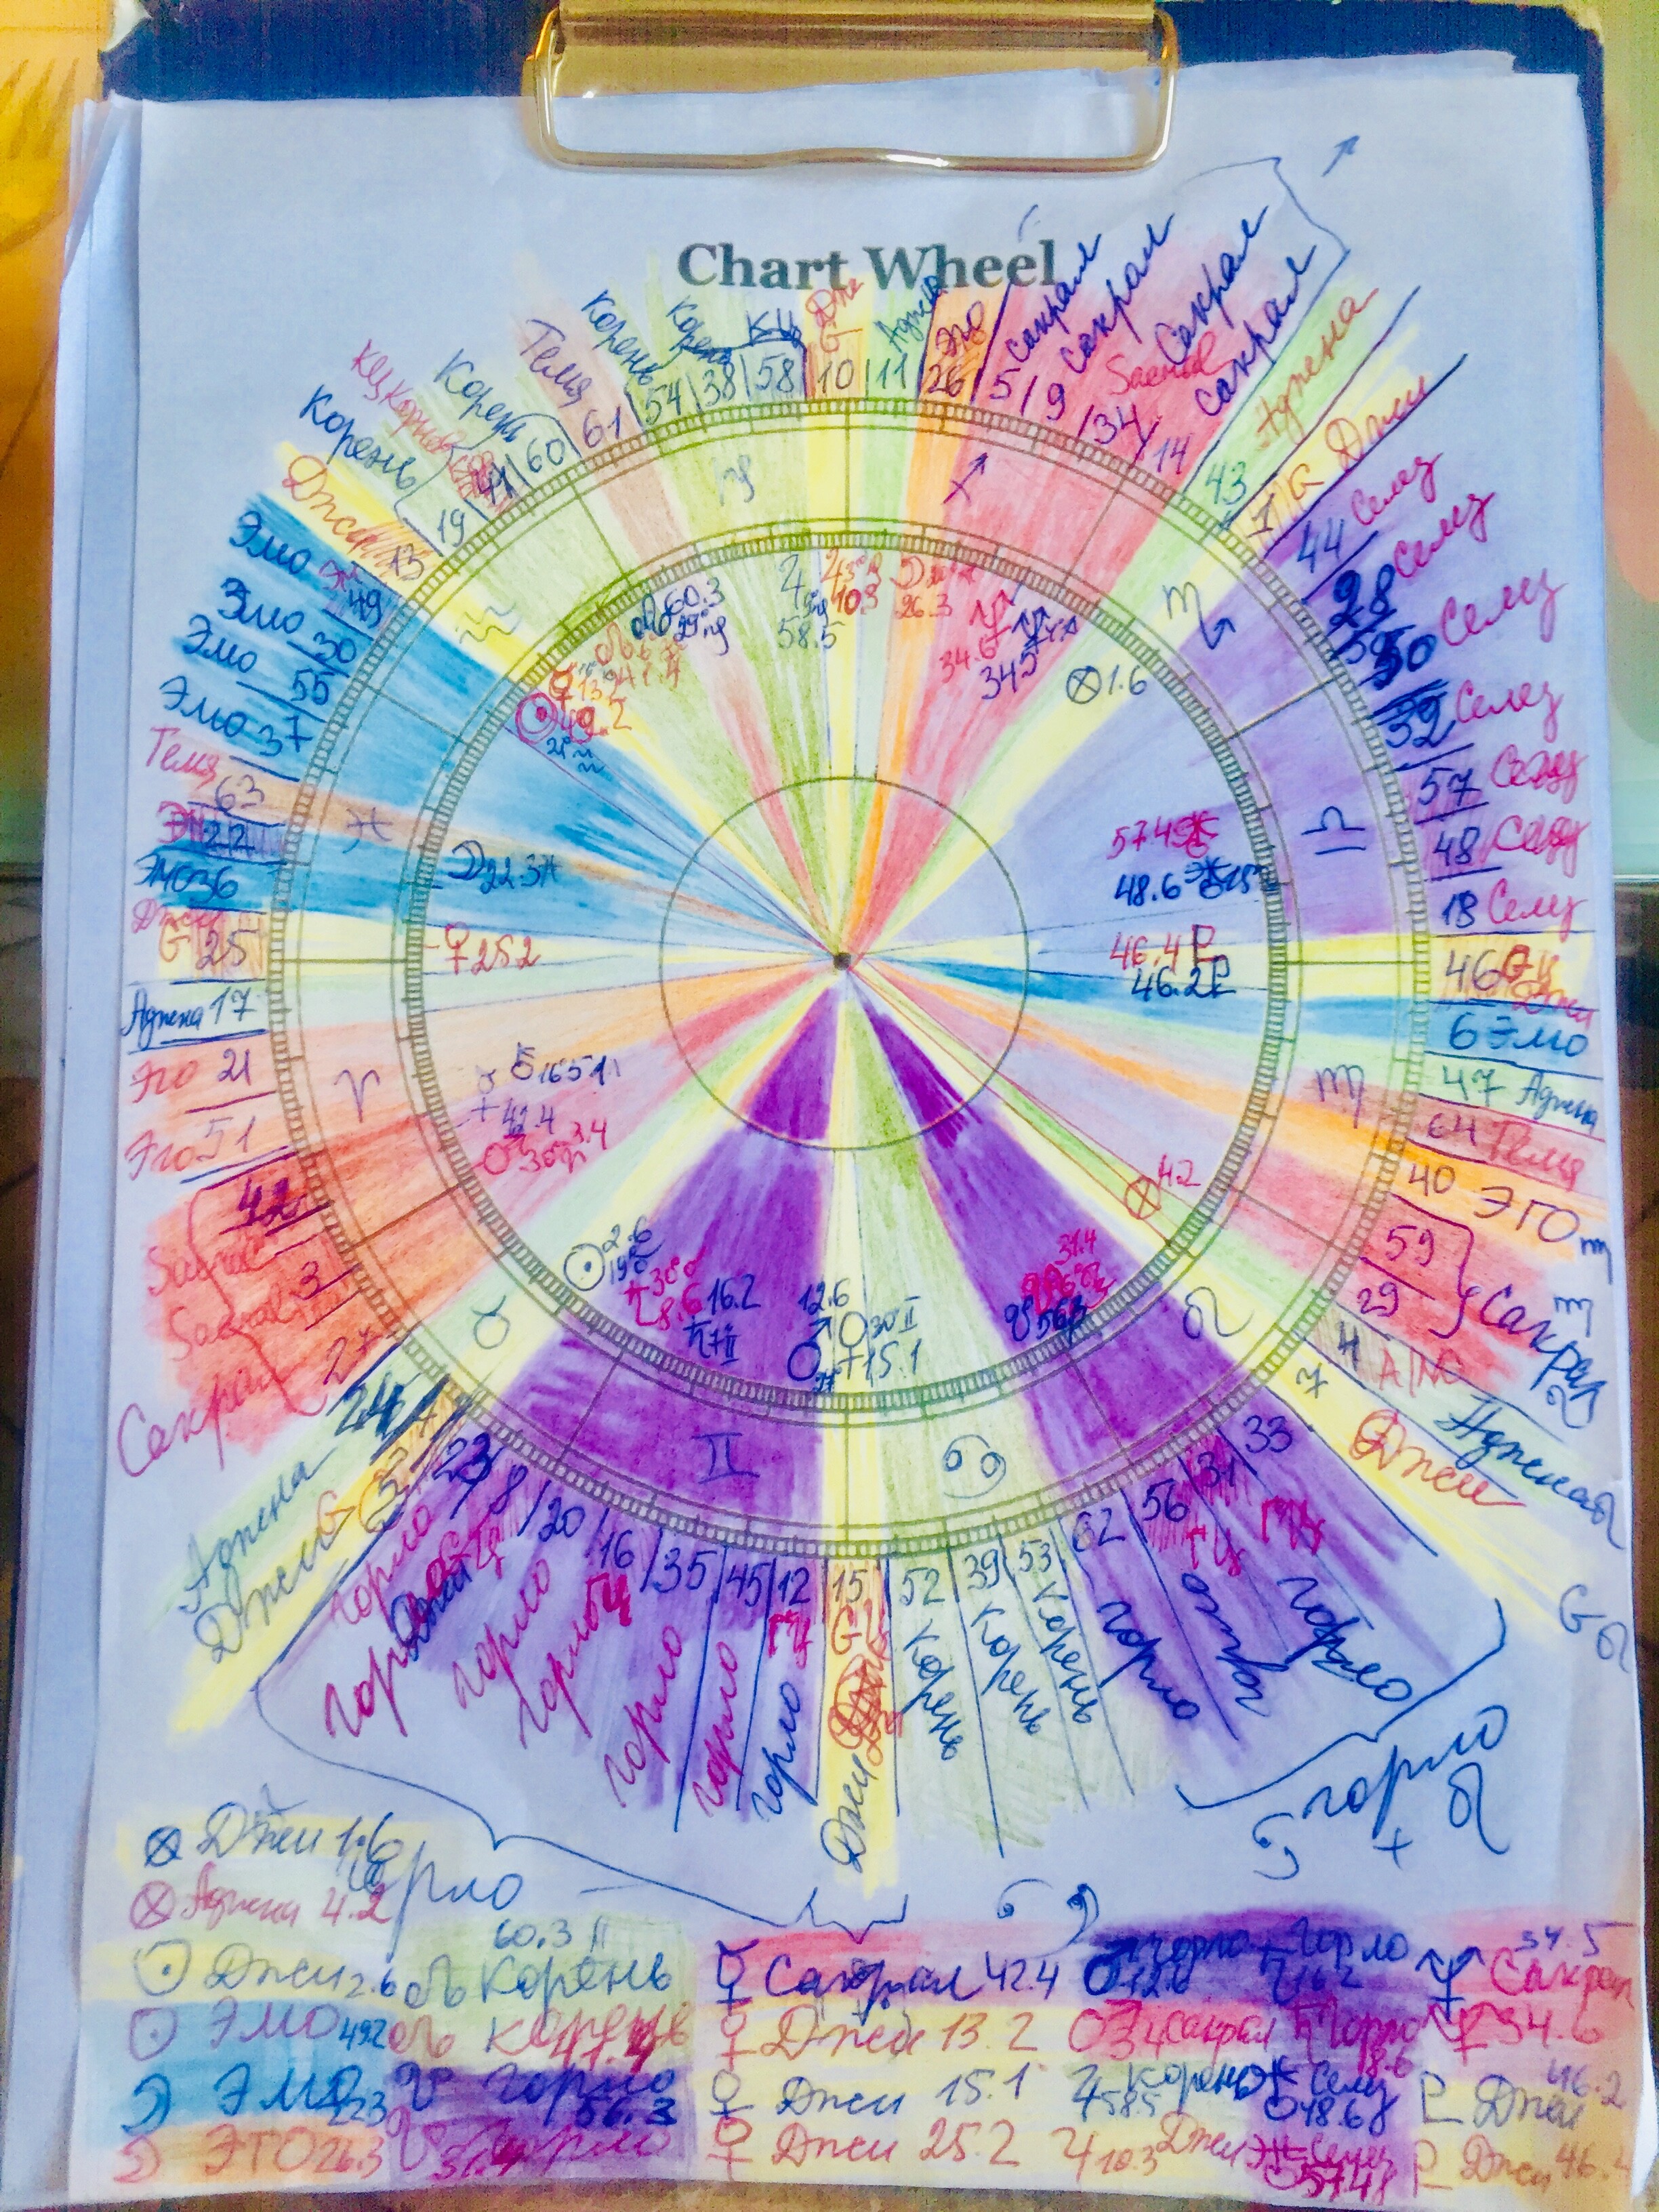 Chart Wheel
Корень
Корень
Темя
Корень
Корень
КЦ
G
Аджна
Эго
Сакрал
Сакрал
Сакрал
Sacral
Сакрал
Аджна
Джи
19
41
60
61
54
38
58
10
11
26
5
9
34
14
43
1
G
13
Эмо
49
Эмо 30
Эмо 55
Эмо 37
Темя
63
22
Эмо 36
Джи
G 25
Аджна 17
Эго 21
Эго 51
42
Sacral 3
Сакрал 27
Аджна 24
Джи G 2
44 Селез
28 Селез
50 Селез
32 Селез
57 Селез
48 Селез
18 Селез
46
6 Эмо
47 Аджна
64 Темя
40 ЭГО ♍
59
29
Сакрал
♍
♌
4
Аджна ♌
7
Джи
G ♌
♑
♐
♒
♏
♓
♎
♈
♍
♉
♌
♊
♋
60.3
29
58.5
10.3
26.3
34.6
34.5
⊗ 1.6
13.2
☉ 49.2
☽ 22.3 ♓
♀ 25.2
57.4
48.6
46.4
46.2
42.4
3.4
⊗ 4.2
☉ 2.6
8.6
16.2
12.6
15.1
31.4
56.3
23
8
20
16
35
45
12
15
52
39
53
62
56
31
33
Горло
Горло
Горло
Горло
Горло
Горло
ГЦ
Горло
G
Джи
Корень
Корень
Корень
Горло
ГЦ
Горло
ГЦ
Горло
Горло
♌
⊗ Джи 1.6
Горло
⊗ Аджна 4.2
☉ Джи 2.6
☊ Корень 60.3
☿ Сакрал 42.4
♂ Горло 12.6
♄ Горло 16.2
♆ Сакрал 34.5
☉ ЭМО 49.2
☊ Корень 41.4
♀ Джи 13.2
♂ 3.4 Сакрал
♄ Горло 8.6
♆ 34.6
☽ ЭМО 22.3
☋ Горло 56.3
♀ Джи 15.1
♃ Корень 58.5
Селез 48.6
♇ Джи 46.2
☽ ЭГО 26.3
☋ Горло 31.4
♀ Джи 25.2
♃ 10.3 Джи
Селез 57.4
♇ Джи 46.4